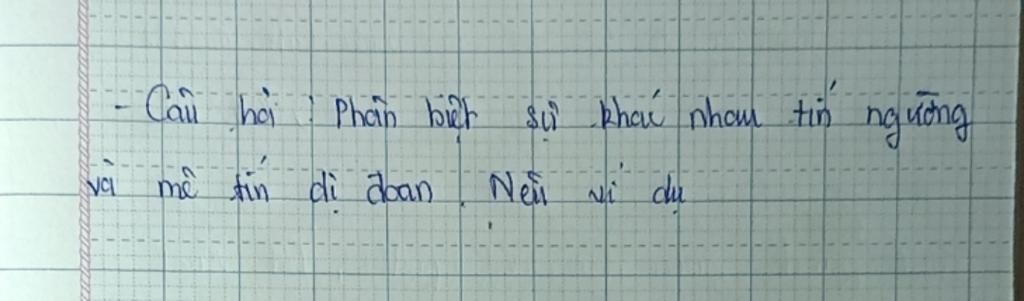 - Câu hỏi : Phân biệt sự khác nhau tín ngưỡng
và mê tín dị đoan. Nêu ví dụ